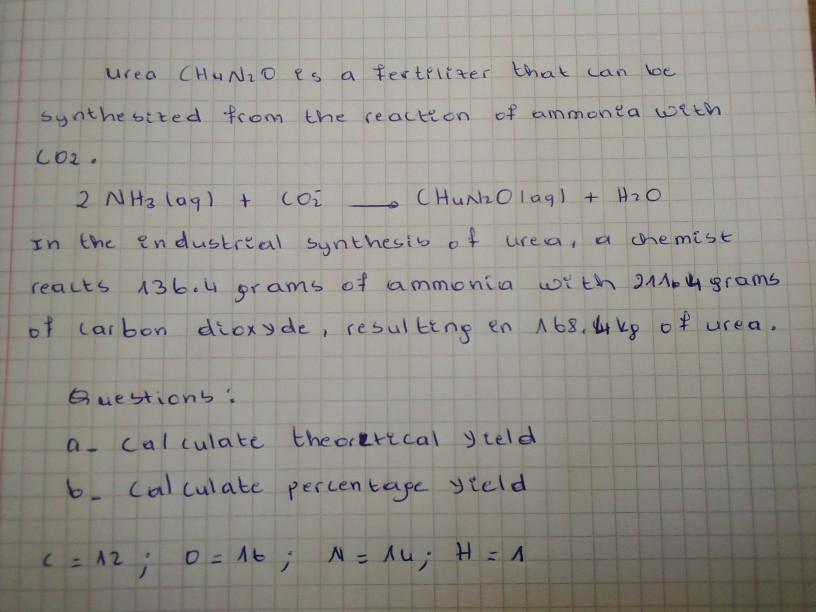 Urea CH4N2O is a fertilizer that can be
synthesized from the reaction of ammonia with
CO2.
2 NH3 (aq) + CO2 → CH4N2O (aq) + H2O
In the industrial synthesis of urea, a chemist
reacts 136.4 grams of ammonia with 211.4 grams
of carbon dioxyde, resulting in 168.4 kg of urea.
Questions :
a- Calculate theoretical yield
b- Calculate percentage yield
C = 12 ; O = 16 ; N = 14 ; H = 1